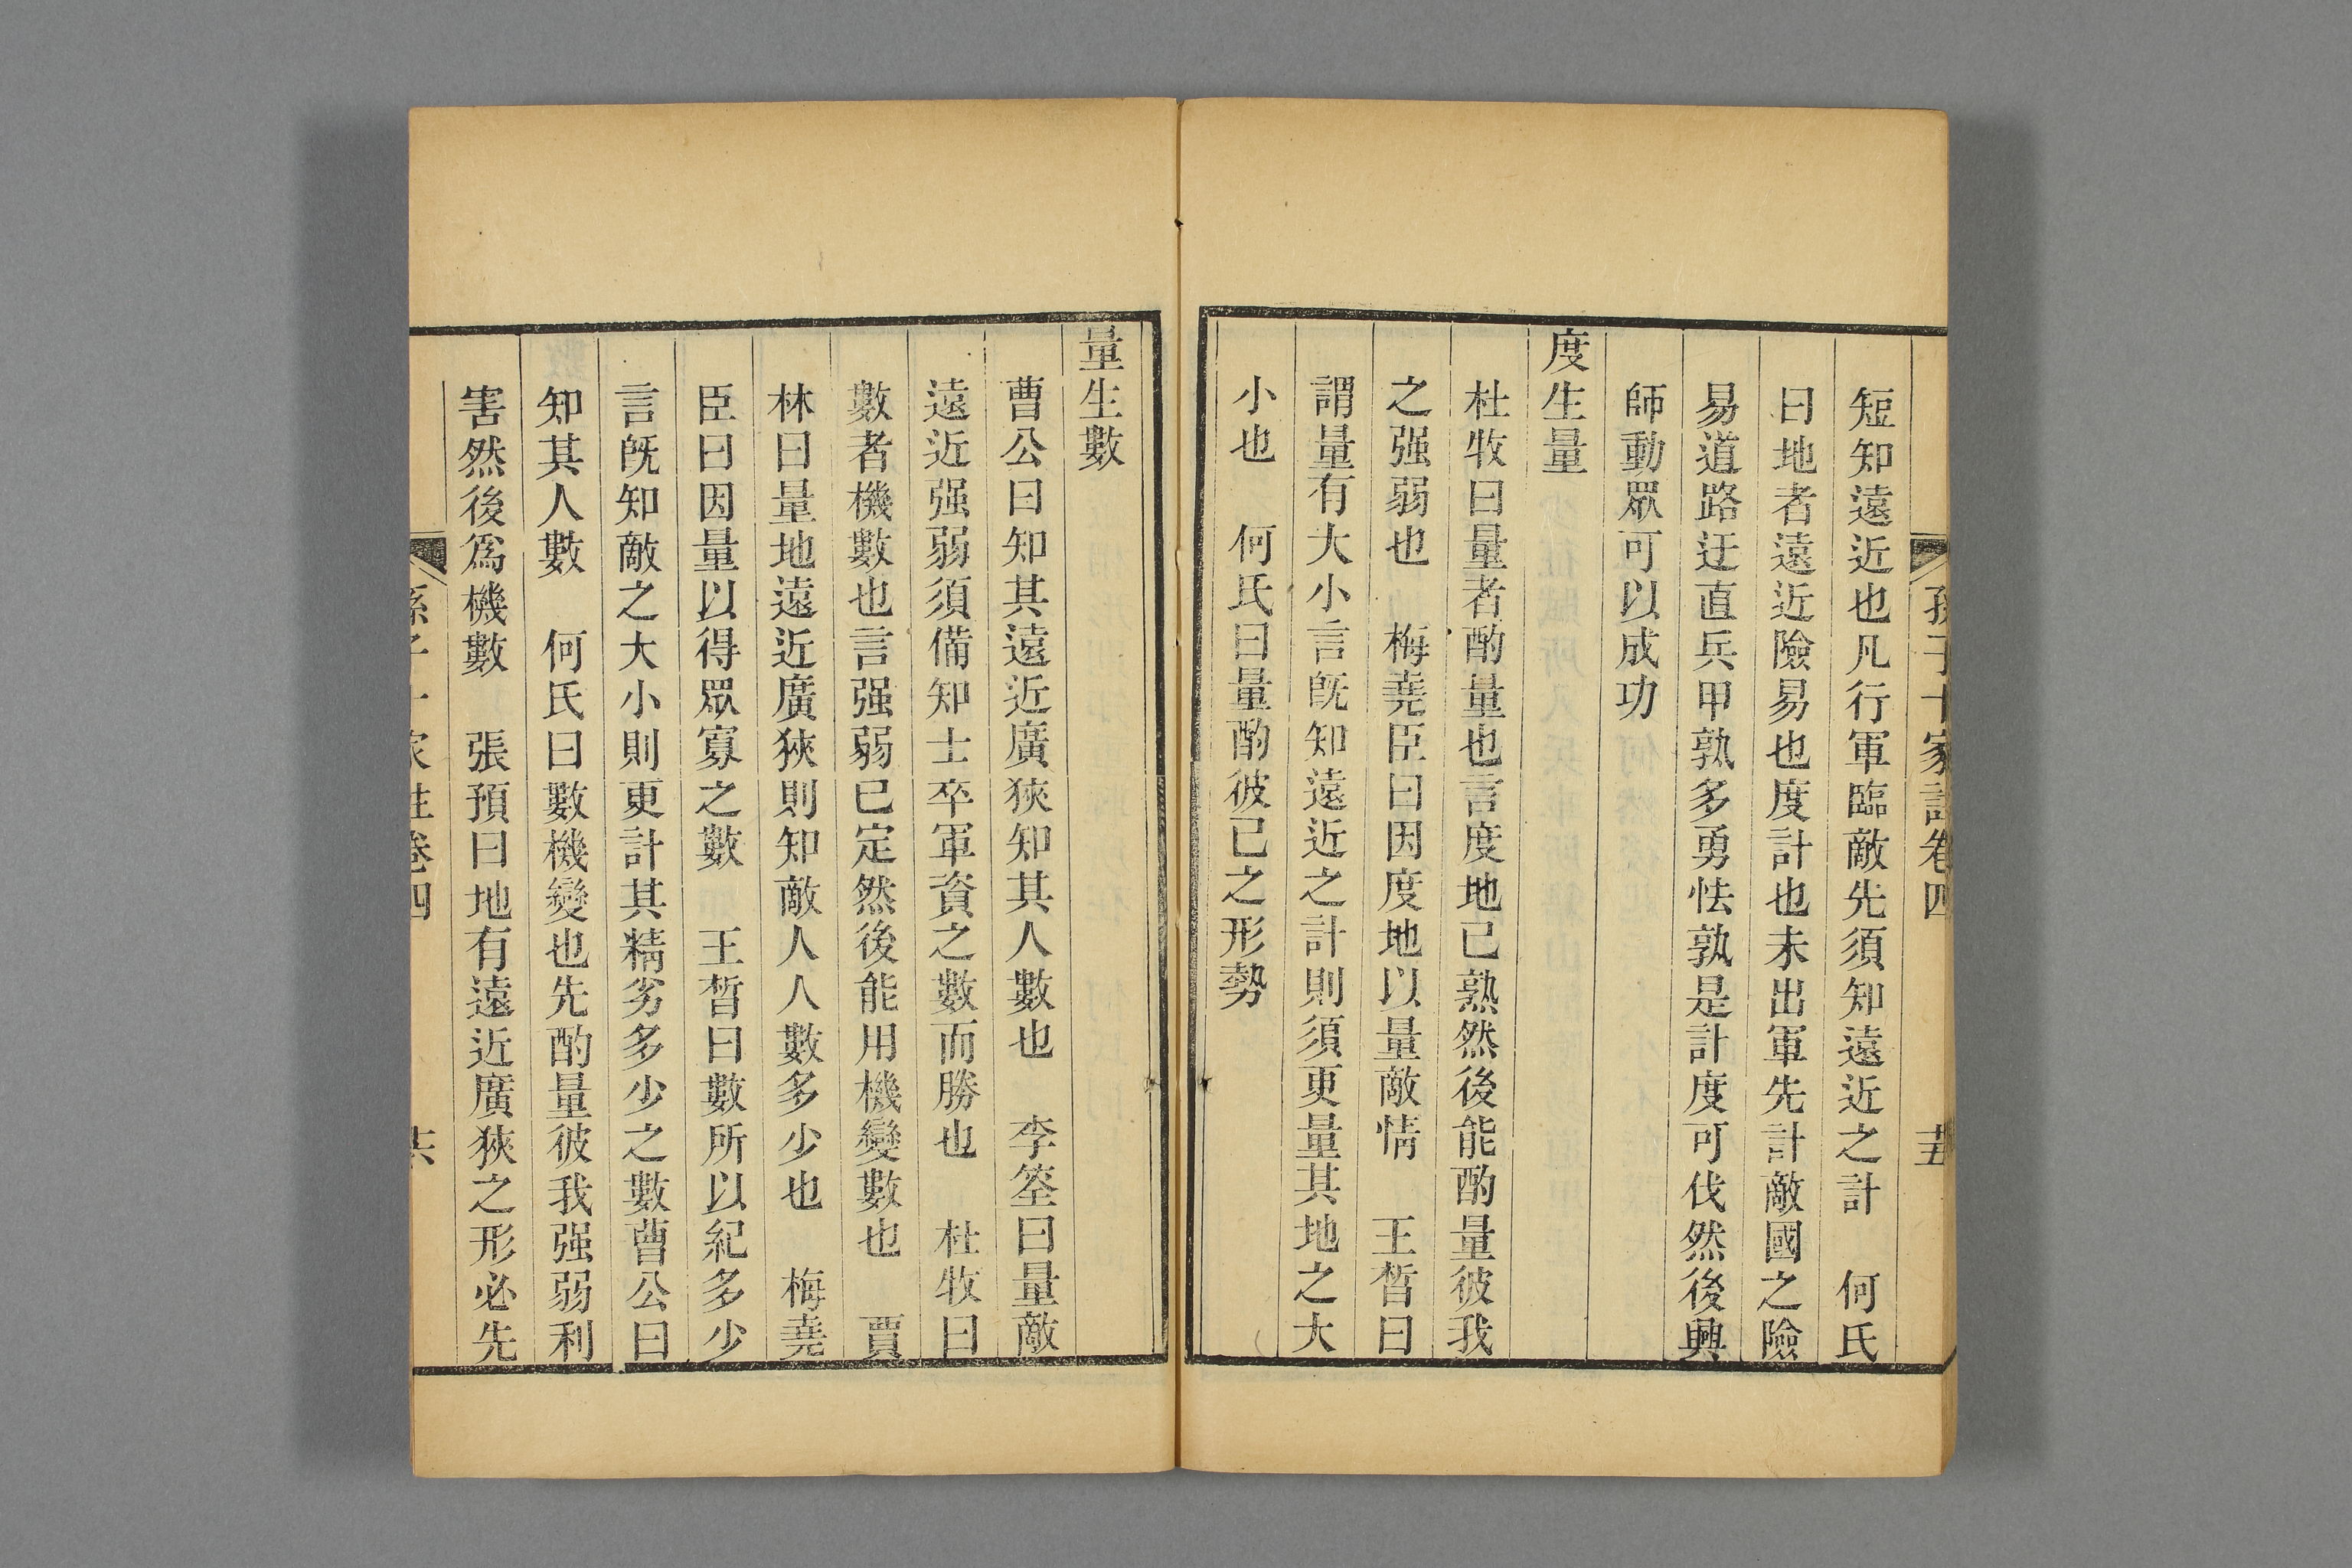 孫子十家註卷四 十五
短知遠近也凡行軍臨敵先須知遠近之計 何氏
曰地者遠近險易也度計也未出軍先計敵國之險
易道路迂直兵甲孰多勇怯孰是計度可伐然後興
師動眾可以成功
度生量
杜牧曰量者酌量也言度地已熟然後能酌量彼我
之强弱也 梅堯臣曰因度地以量敵情 王晳曰
謂量有大小言旣知遠近之計則須更量其地之大
小也 何氏曰量酌彼己之形勢
量生數
曹公曰知其遠近廣狹知其人數也 李筌曰量敵
遠近强弱須備知士卒軍資之數而勝也 杜牧曰
數者機數也言强弱已定然後能用機變數也 賈
林曰量地遠近廣狹則知敵人人數多少也 梅堯
臣曰因量以得眾寡之數 王晳曰數所以紀多少
言旣知敵之大小則更計其精劣多少之數曹公曰
知其人數 何氏曰數機變也先酌量彼我强弱利
害然後爲機數 張預曰地有遠近廣狹之形必先
孫子十家註卷四 十六